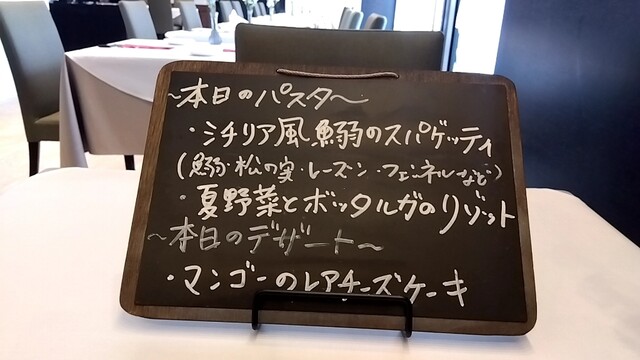 ~本日のパスタ~
・シチリア風鰯のスパゲッティ
(鰯・松の実・レーズン・フェンネルなど)
・夏野菜とボッタルガのリゾット
~本日のデザート~
・マンゴーのレアチーズケーキ